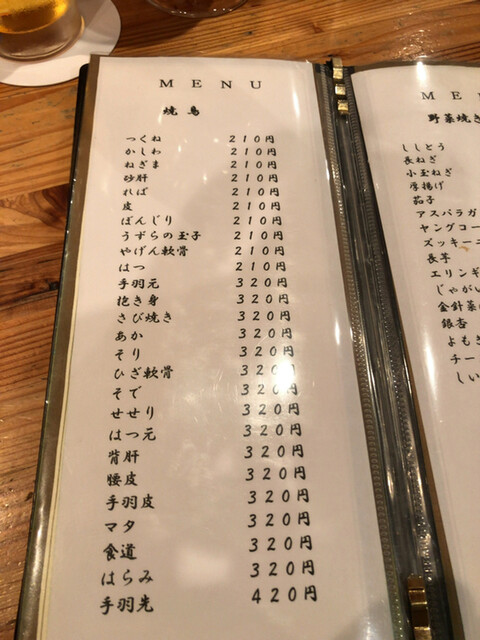 MENU
焼鳥
つくね 210円
かしわ 210円
ねぎま 210円
砂肝 210円
ればー 210円
皮 210円
ぼんじり 210円
うずらの玉子 210円
やげん軟骨 210円
はつ 210円
手羽元 320円
抱き身 320円
さび焼き 320円
あか 320円
そり 320円
ひざ軟骨 320円
そで 320円
せせり 320円
はつ元 320円
背肝 320円
腰皮 320円
手羽皮 320円
マタ 320円
食道 320円
はらみ 320円
手羽先 420円
ME
野菜焼き
ししとう
長ねぎ
小玉ねぎ
厚揚げ
茄子
アスパラガ
ヤングコー
ズッキーニ
長芋
エリンギ
じゃがい
金針菜
銀杏
よもぎ
チー
しい